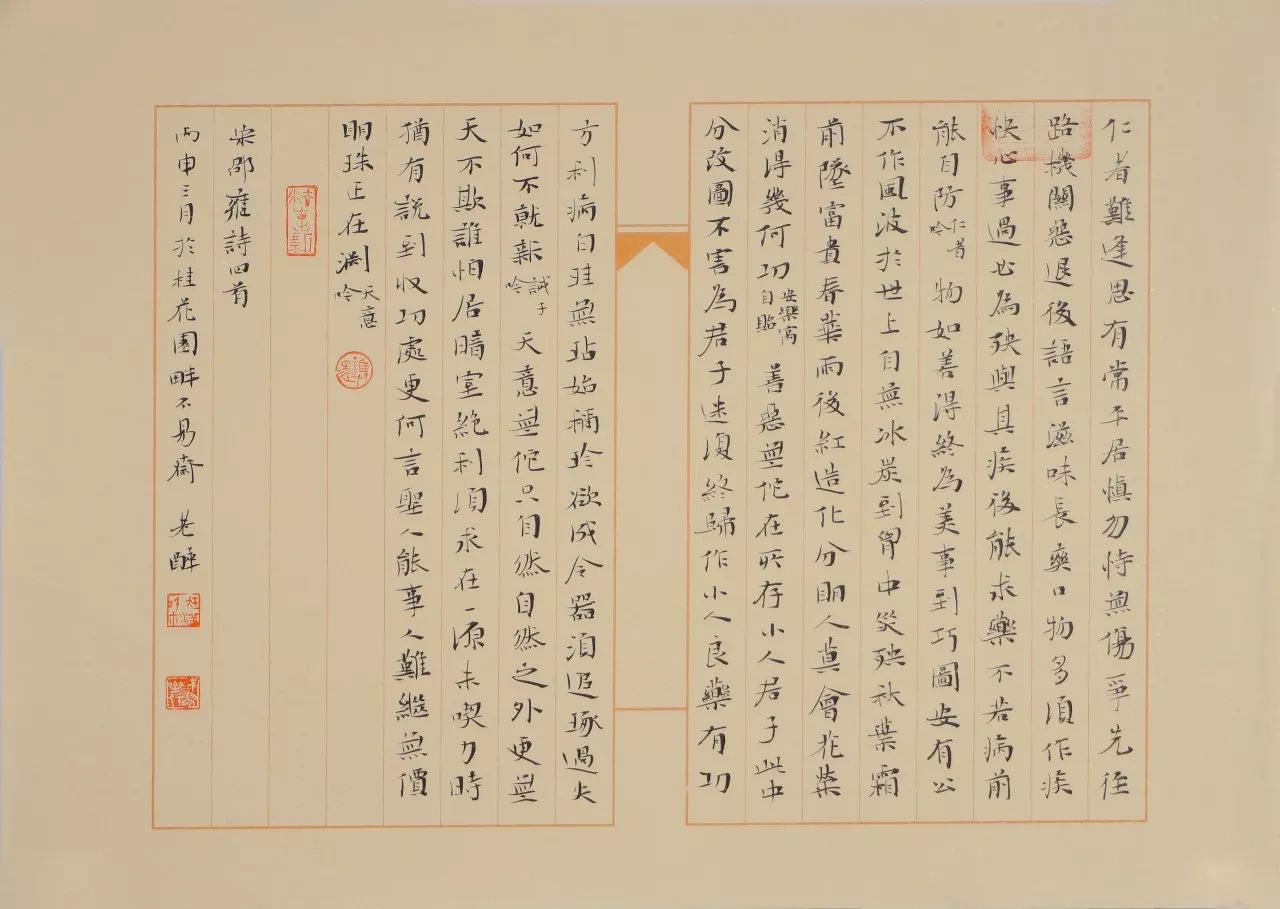 仁者難逢思有常平居慎勿恃無傷爭先徑
路機關惡退後語言滋味長爽口物多須作疾
快心事過必為殃與其疾後能求藥不若病前
能自防仁者吟 物如善得終為美事到巧圖安有公
不作風波於世上自無冰炭到胷中災殃秋葉霜
前墜富貴春華雨後紅造化分明人莫會花榮
消得幾何功安樂窩自貽 善惡無佗在所存小人君子此中
分改圖不害為君子迷復終歸作小人良藥有功
方利病白珪無玷始稱珍欲成令器須追琢過失
如何不就新誡子吟 天意無佗只自然自然之外更無
天不欺誰怕居暗室絕利須求在一源未喫力時
猶有說到收功處更何言聖人能事人難繼無價
明珠正在淵天意吟
宋邵雍詩四首
丙申三月於桂花園畔不易齋 老醉